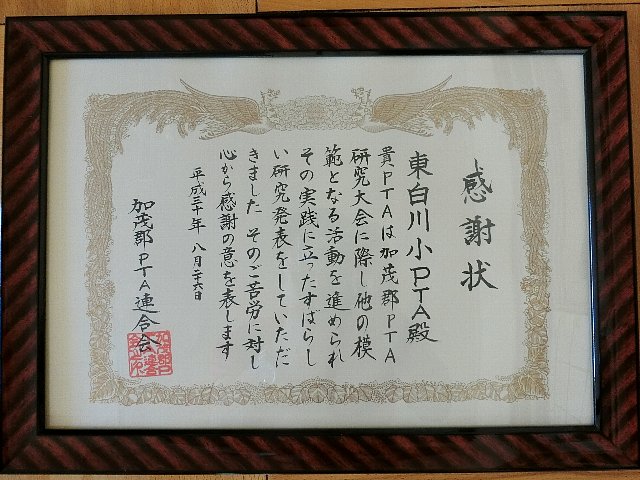 感謝状
東白川小PTA殿
貴PTAは加茂郡PTA
研究大会に際し他の模
範となる活動を進められ
その実践に立ったすばらし
い研究発表をしていただ
きました そのご苦労に対し
心から感謝の意を表します
平成三十年 八月二十六日
加茂郡PTA連合会